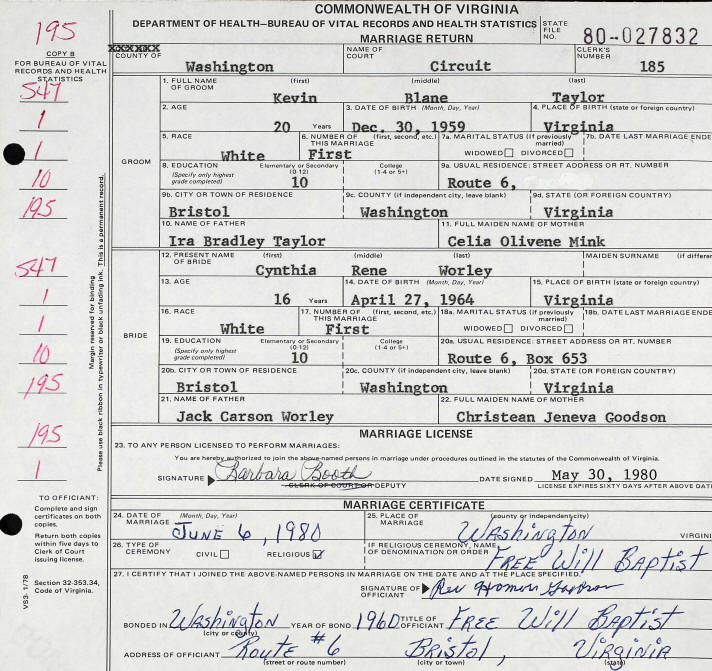 COMMONWEALTH OF VIRGINIA
DEPARTMENT OF HEALTH—BUREAU OF VITAL RECORDS AND HEALTH STATISTICS
MARRIAGE RETURN
STATE FILE NO. 80-027832
195
COPY B
FOR BUREAU OF VITAL RECORDS AND HEALTH STATISTICS
XXXXXX COUNTY OF Washington NAME OF COURT Circuit CLERK'S NUMBER 185
547
1
1
10
195
547
1
1
10
195
195
1
Margin reserved for binding
Please use black ribbon in typewriter or black unfading ink. This is a permanent record.
GROOM
1. FULL NAME OF GROOM (first) Kevin (middle) Blane (last) Taylor
2. AGE 20 Years 3. DATE OF BIRTH (Month, Day, Year) Dec. 30, 1959 4. PLACE OF BIRTH (state or foreign country) Virginia
5. RACE White 6. NUMBER OF THIS MARRIAGE (first, second, etc.) First 7a. MARITAL STATUS (If previously married) WIDOWED DIVORCED 7b. DATE LAST MARRIAGE ENDE
8. EDUCATION (Specify only highest grade completed) Elementary or Secondary (0-12) 10 College (1-4 or 5+) 9a. USUAL RESIDENCE: STREET ADDRESS OR RT. NUMBER Route 6,
9b. CITY OR TOWN OF RESIDENCE Bristol 9c. COUNTY (if independent city, leave blank) Washington 9d. STATE (OR FOREIGN COUNTRY) Virginia
10. NAME OF FATHER Ira Bradley Taylor 11. FULL MAIDEN NAME OF MOTHER Celia Olivene Mink
BRIDE
12. PRESENT NAME OF BRIDE (first) Cynthia (middle) Rene (last) Worley MAIDEN SURNAME (if differe
13. AGE 16 Years 14. DATE OF BIRTH (Month, Day, Year) April 27, 1964 15. PLACE OF BIRTH (state or foreign country) Virginia
16. RACE White 17. NUMBER OF THIS MARRIAGE (first, second, etc.) First 18a. MARITAL STATUS (if previously married) WIDOWED DIVORCED 18b. DATE LAST MARRIAGE ENDE
19. EDUCATION (Specify only highest grade completed) Elementary or Secondary (0-12) 10 College (1-4 or 5+) 20a. USUAL RESIDENCE: STREET ADDRESS OR RT. NUMBER Route 6, Box 653
20b. CITY OR TOWN OF RESIDENCE Bristol 20c. COUNTY (if independent city, leave blank) Washington 20d. STATE (OR FOREIGN COUNTRY) Virginia
21. NAME OF FATHER Jack Carson Worley 22. FULL MAIDEN NAME OF MOTHER Christean Jeneva Goodson
MARRIAGE LICENSE
23. TO ANY PERSON LICENSED TO PERFORM MARRIAGES:
You are hereby authorized to join the above-named persons in marriage under procedures outlined in the statutes of the Commonwealth of Virginia.
SIGNATURE Barbara Booth DATE SIGNED May 30, 1980
CLERK OF COURT OR DEPUTY LICENSE EXPIRES SIXTY DAYS AFTER ABOVE DATE
TO OFFICIANT:
Complete and sign certificates on both copies.
Return both copies within five days to Clerk of Court issuing license.
Section 32-353.34, Code of Virginia.
VS3- 1/78
MARRIAGE CERTIFICATE
24. DATE OF MARRIAGE (Month, Day, Year) JUNE 6, 1980 25. PLACE OF MARRIAGE (county or independent city) Washington VIRGINI
26. TYPE OF CEREMONY CIVIL RELIGIOUS IF RELIGIOUS CEREMONY, NAME OF DENOMINATION OR ORDER FREE Will BAPtist
27. I CERTIFY THAT I JOINED THE ABOVE-NAMED PERSONS IN MARRIAGE ON THE DATE AND AT THE PLACE SPECIFIED.
SIGNATURE OF OFFICIANT Rev
BONDED IN Washington (city or county) YEAR OF BOND 1960 TITLE OF OFFICIANT FREE Will BAPtist
ADDRESS OF OFFICIANT Route #6 (street or route number) BRIStol, (city or town) VIRGINIA (state)